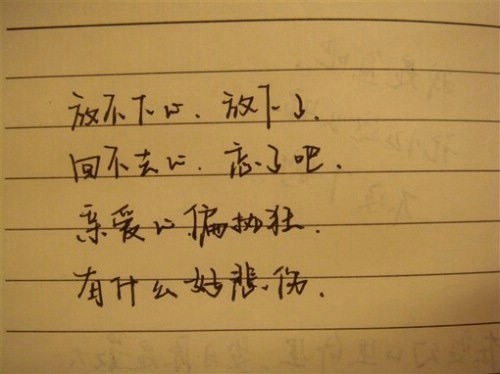 放不下心.放下了.
回不去心.忘了吧.
亲爱心偏执狂.
有什么好悲伤.